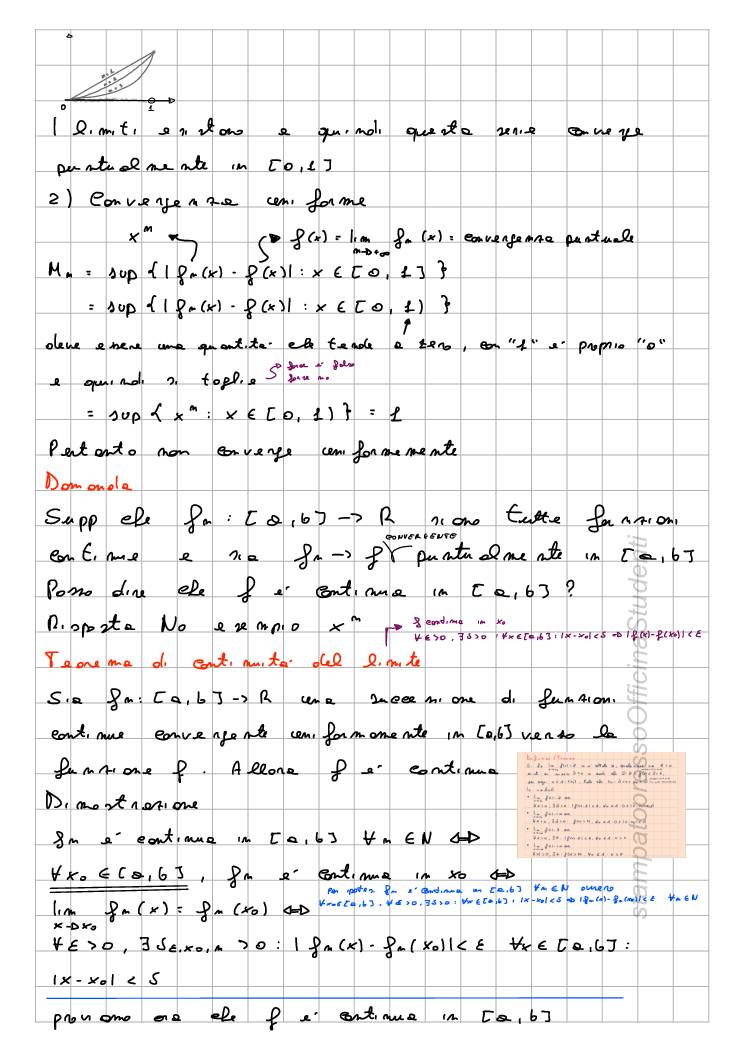 n=1
n=2
n=3
0 1
I limiti esistono e quindi questa serie converge
puntualmente in [0,1]
2) Convergenza uniforme
xⁿ f(x) = lim fn(x) = convergenza puntuale
n→+∞
Mn = sup {|fn(x) - f(x)| : x ∈ [0, 1] }
= sup {|fn(x) - f(x)| : x ∈ [0, 1) }
deve essere una quantità che tende a zero, con "1" è proprio "0"
e quindi si toglie forse è falso
forse no
= sup { xⁿ : x ∈ [0, 1) } = 1
Pertanto non converge uniformemente
Domanda
Supp che fn : [a,b] -> R siano tutte funzioni
CONVERGENTE
continue e sia fn -> f puntualmente in [a,b]
Posso dire che f è continua in [a,b] ?
Risposta No esempio xⁿ
f continua in x0
∀ε>0, ∃δ>0 : ∀x∈[a,b] : |x-x0|<δ ⇒ |f(x)-f(x0)|<ε
Teorema di continuità del limite
Sia fn: [a,b] -> R una successione di funzioni
continue convergente uniformemente in [a,b] verso la
funzione f. Allora f è continua
Dimostrazione
fn è continua in [a,b] ∀n∈N ⇔
∀x0 ∈ [a,b], fn è continua in x0 ⇔
Per ipotesi fn è continua in [a,b] ∀n∈N ovvero
∀x0∈[a,b], ∀ε>0, ∃δ>0 : ∀x∈[a,b] : |x-x0|<δ ⇒ |fn(x)-fn(x0)|<ε ∀n∈N
lim fn(x) = fn(x0) ⇔
x→x0
∀ε>0, ∃δε,x0,n > 0 : |fn(x) - fn(x0)| < ε ∀x∈[a,b] :
|x-x0| < δ
proviamo ora che f è continua in [a,b]
stampatopressoOfficinaStudenti